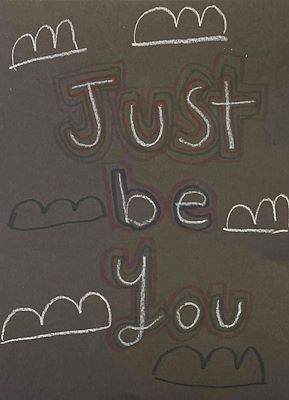 Just
be
you